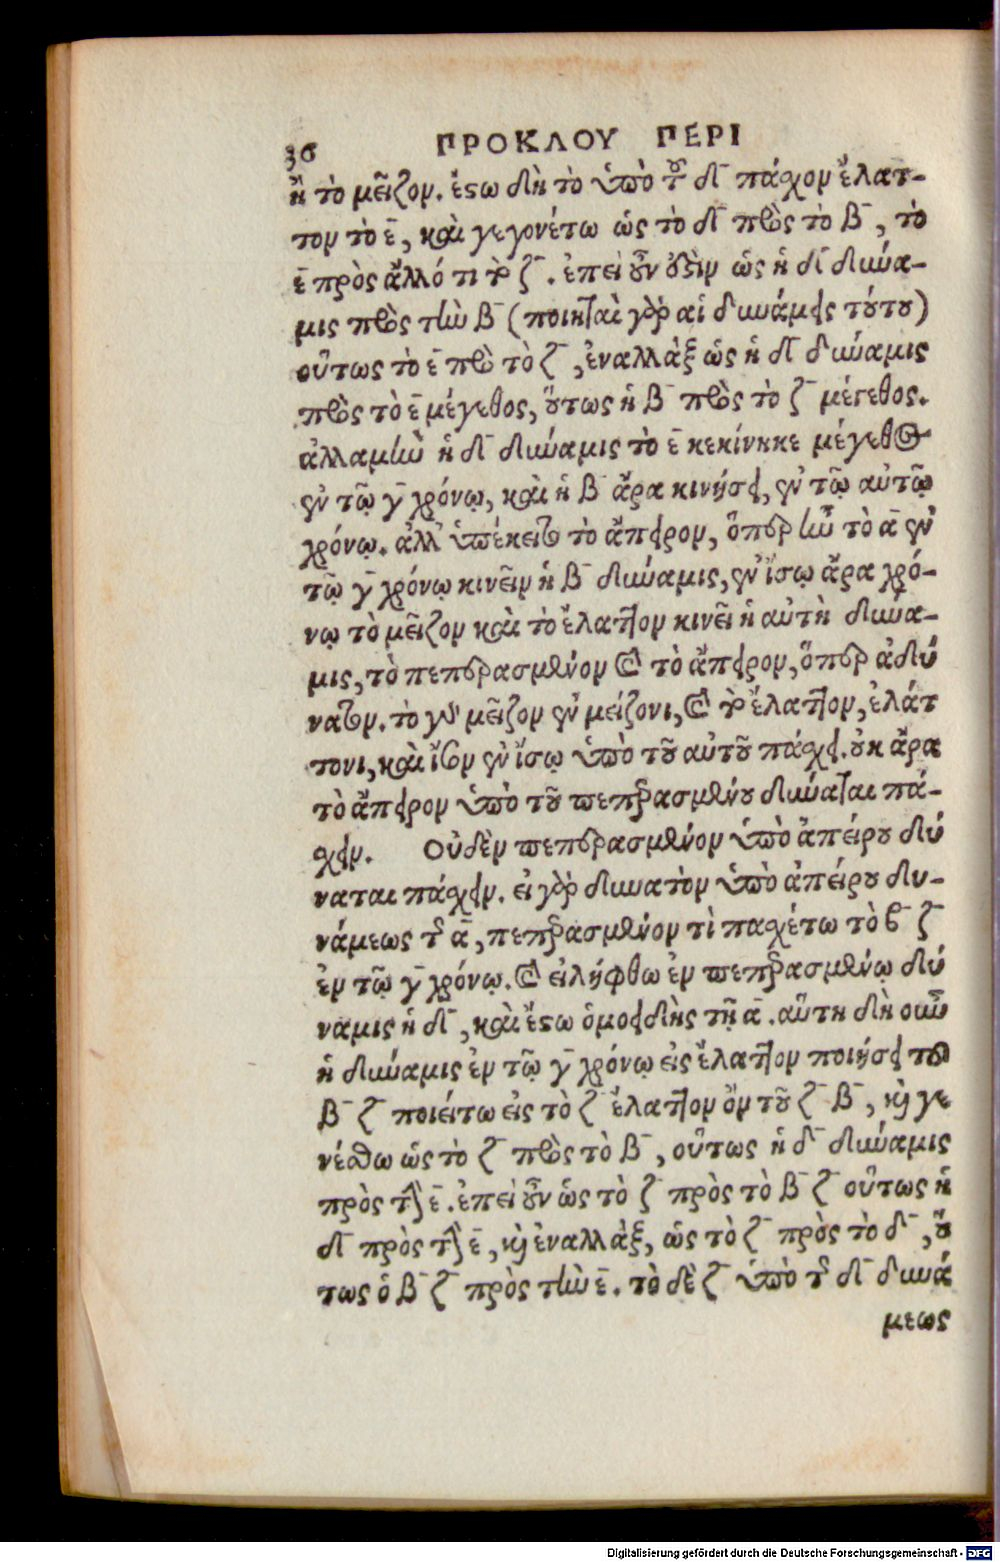 36 ΠΡΟΚΛΟΥ ΠΕΡΙ
ἢ τὸ μεῖζον. ἔστω δὴ τὸ ὑπὸ τοῦ δ̄ πάχον ἔλατ-
τον τὸ ε̄, καὶ γεγονέτω ὡς τὸ δ̄ πρὸς τὸ β̄, τὸ
ε̄ πρὸς ἄλλό τι τὸ ζ̄. ἐπεὶ οὖν οὐσὶν ὡς ἡ δ̄ δύνα-
μις πρὸς τὴν β̄ (ποιηταὶ γὰρ αἱ δυνάμεις τούτου)
οὕτως τὸ ε̄ πρὸ τὸ ζ̄, ἐναλλὰξ ὡς ἡ δ̄ δύναμις
πρὸς τὸ ε̄ μέγεθος, οὕτως ἡ β̄ πρὸς τὸ ζ̄ μέγεθος.
ἀλλαμὴν ἡ δ̄ δύναμις τὸ ε̄ κεκίνηκε μέγεθος
ἐν τῷ γ̄ χρόνῳ, καὶ ἡ β̄ ἄρα κινήσει, ἐν τῷ αὐτῷ
χρόνῳ. ἀλλ' ὑπέκειτο τὸ ἄπειρον, ὅπερ ἦν τὸ ᾱ ἐν
τῷ γ̄ χρόνῳ κινεῖν ἡ β̄ δύναμις, ἐν ἴσῳ ἄρα χρό-
νῳ τὸ μεῖζον καὶ τὸ ἔλαττον κινεῖ ἡ αὐτὴ δύνα-
μις, τὸ πεπερασμένον καὶ τὸ ἄπειρον, ὅπερ ἀδύ
νατον. τὸ γὰρ μεῖζον ἐν μείζονι, καὶ τὸ ἔλαττον, ἐλάτ
τονι, καὶ ἴσον ἐν ἴσῳ ὑπὸ τοῦ αὐτοῦ πάχει. οὐκ ἄρα
τὸ ἄπειρον ὑπὸ τοῦ πεπερασμένου δύναται πά-
χειν. Οὐδὲν πεπερασμένον ὑπὸ ἀπείρου δύ
ναται πάχειν. εἰ γὰρ δυνατὸν ὑπὸ ἀπείρου δυ-
νάμεως τῆς ᾱ, πεπερασμένον τὶ παχέτω τὸ β̄ ζ̄
ἐν τῷ γ̄ χρόνῳ. καὶ εἰλήφθω ἐν πεπερασμένῳ δύ
ναμις ἡ δ̄, καὶ ἔστω ὁμοειδὴς τῇ ᾱ. αὕτη δὴ οὖν
ἡ δύναμις ἐν τῷ γ̄ χρόνῳ εἰς ἔλαττον ποιήσει το
β̄ ζ̄ ποιείτω εἰς τὸ ζ̄ ἔλαττον ὂν τοῦ ζ̄ β̄, καὶ γε
νέσθω ὡς τὸ ζ̄ πρὸς τὸ β̄, οὕτως ἡ δ̄ δύναμις
πρὸς τὴν ε̄. ἐπεὶ οὖν ὡς τὸ ζ̄ πρὸς τὸ β̄ ζ̄ οὕτως ἡ
δ̄ πρὸς τὴν ε̄, καὶ ἐναλλὰξ, ὡς τὸ ζ̄ πρὸς τὸ δ̄, οὕ
τως ὁ β̄ ζ̄ πρὸς τὴν ε̄. τὸ δὲ ζ̄ ὑπὸ τῆς δ̄ δυνά
μεως
Digitalisierung gefördert durch die Deutsche Forschungsgemeinschaft - DFG